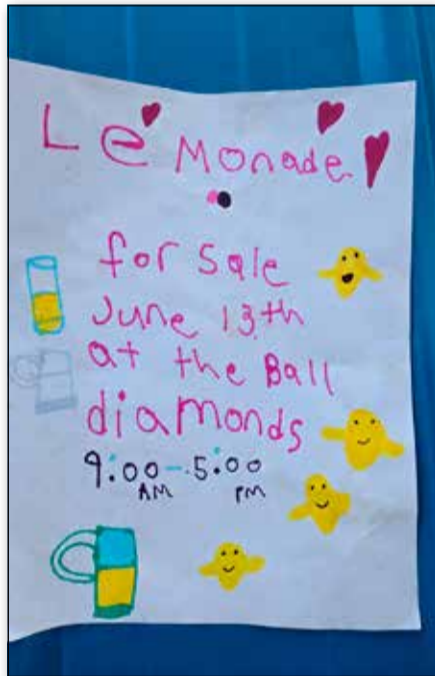 LeMonade
for Sale
June 13th
at the Ball
diamonds
9:00-5:00
AM PM